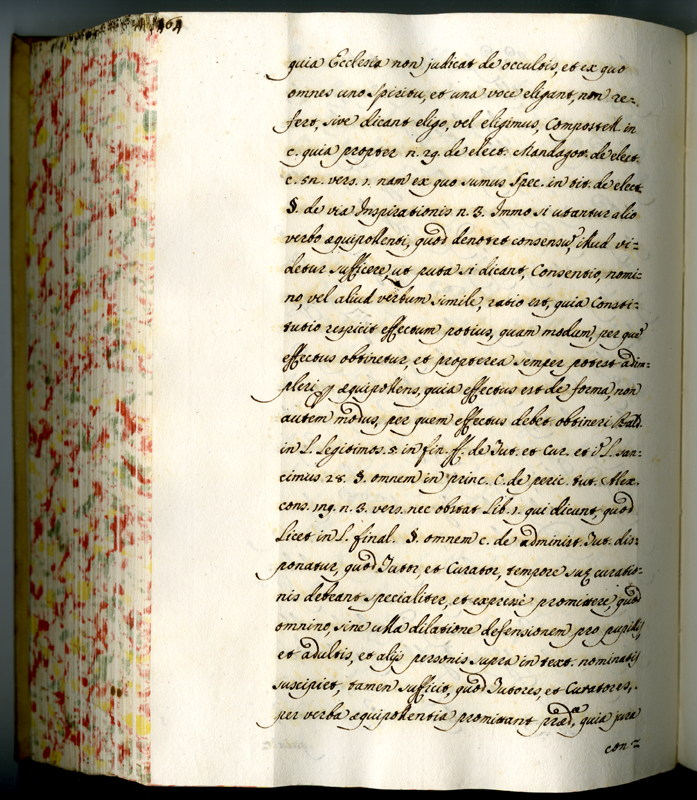 quia Ecclesia non judicat de occultis, et ex quo
omnes uno spiritu, et una voce eligant, non re-
fert, sive dicant eligo, vel eligimus, Compostell. in
c. quia propter n. 29. de elect. Mandagot. de elect.
c. 5n. vers. 1. nam ex quo sumus Spec. in tit. de elect.
§. de via Inspirationis n. 3. Immo si utantur alio
verbo æquipollenti, quod denotet consensũ, illud vi-
detur sufficere, ut puta si dicant, Consentio, nomi-
no, vel aliud verbum simile, ratio est, quia Consti-
tutio respicit effectum potius, quam modum, per quẽ
effectus obtinetur, et propterea semper potest adim-
pleri p æquipollens, quia effectus est de forma, non
autem modus, per quem effectus debet obtineri Bald.
in L. Legitimos. 5. in fin. ff. de Tut. et Cur. et L. san-
cimus 28. §. omnem in princ. C. de peric. tut. Alex.
cons. 119. n. 3. vers. nec obstat Lib. 1. qui dicunt, quod
Licet in L. final. §. omnem c. de administ. Tut. dis-
ponatur, quod Tutor, et Curator, tempore suæ curatio-
nis debeant specialiter, et expresse promittere, quod
omnino, sine ulla dilatione defensionem pro pupillis,
et adultis, et alijs personis supra in text. nominatis
suscipiet, tamen sufficit, quod Tutores, et Curatores,
per verba æquipollentia promittant præd.a, quia jura
con-